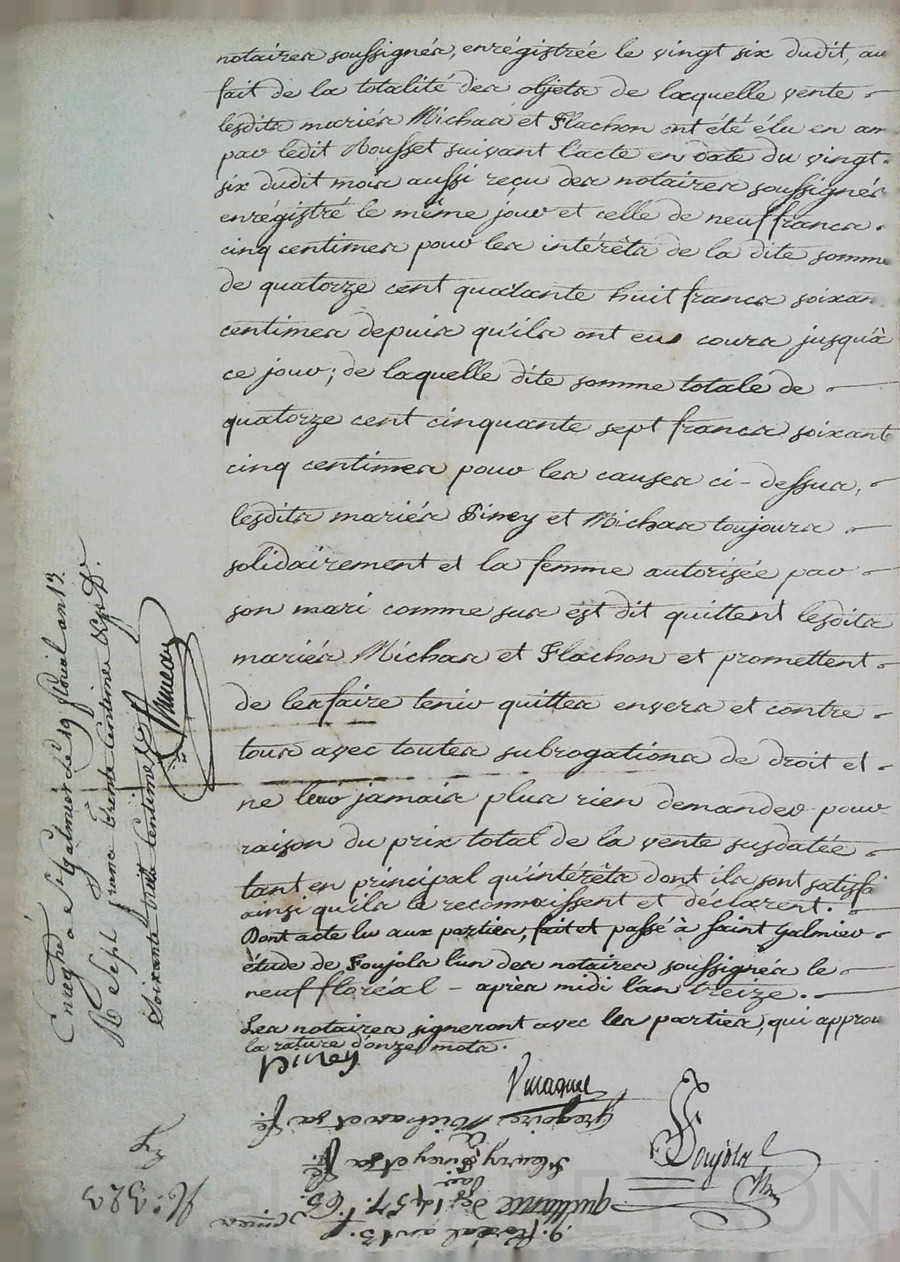 notaires soussignés, enrégistrée le vingt six dudit, au
fait de la totalité des objets de laquelle vente
lesdits mariés Michas et Flachon ont été élu en am
par ledit Rousset suivant l'acte en date du vingt
six dudit mois aussi reçu des notaires soussignés
enrégistré le même jour et celle de neuf francs
cinq centimes pour les intérêts de la dite somme
de quatorze cent quatante huit francs soixan
centimes depuis qu'ils ont eu cours jusqu'à
ce jour; de laquelle dite somme totale de
quatorze cent cinquante sept francs soixant
cinq centimes pour les causes ci-dessus,
lesdits mariés Piney et Michas toujours
solidairement et la femme autorisée par
son mari comme sus est dit quittent lesdits
mariés Michas et Flachon et promettent
de les faire tenir quittes envers et contre
tous avec toutes subrogations de droit et
ne leur jamais plus rien demander pour
raison du prix total de la vente susdatée
tant en principal qu'intérêts dont ils sont satisfa
ainsi qu'ils le reconnaissent et déclarent.
Dont acte lu aux parties, fait et passé à saint Galmier
étude de Foujols l'un des notaires soussignés le
neuf floréal - après midi l'an treize.
Les notaires signeront avec les parties, qui approu
la rature d'onze mots.
Piney
Foujols
Enregtré a St Galmier le 19 floréal an 13
R sept franc trente centimes
soixante huit centimes
9. floréal an 13.
quittance de 1457. f. 65. c
par
Fleury Piney et sa fe.
à
Grégoire Michas et sa fe.
N.° 323